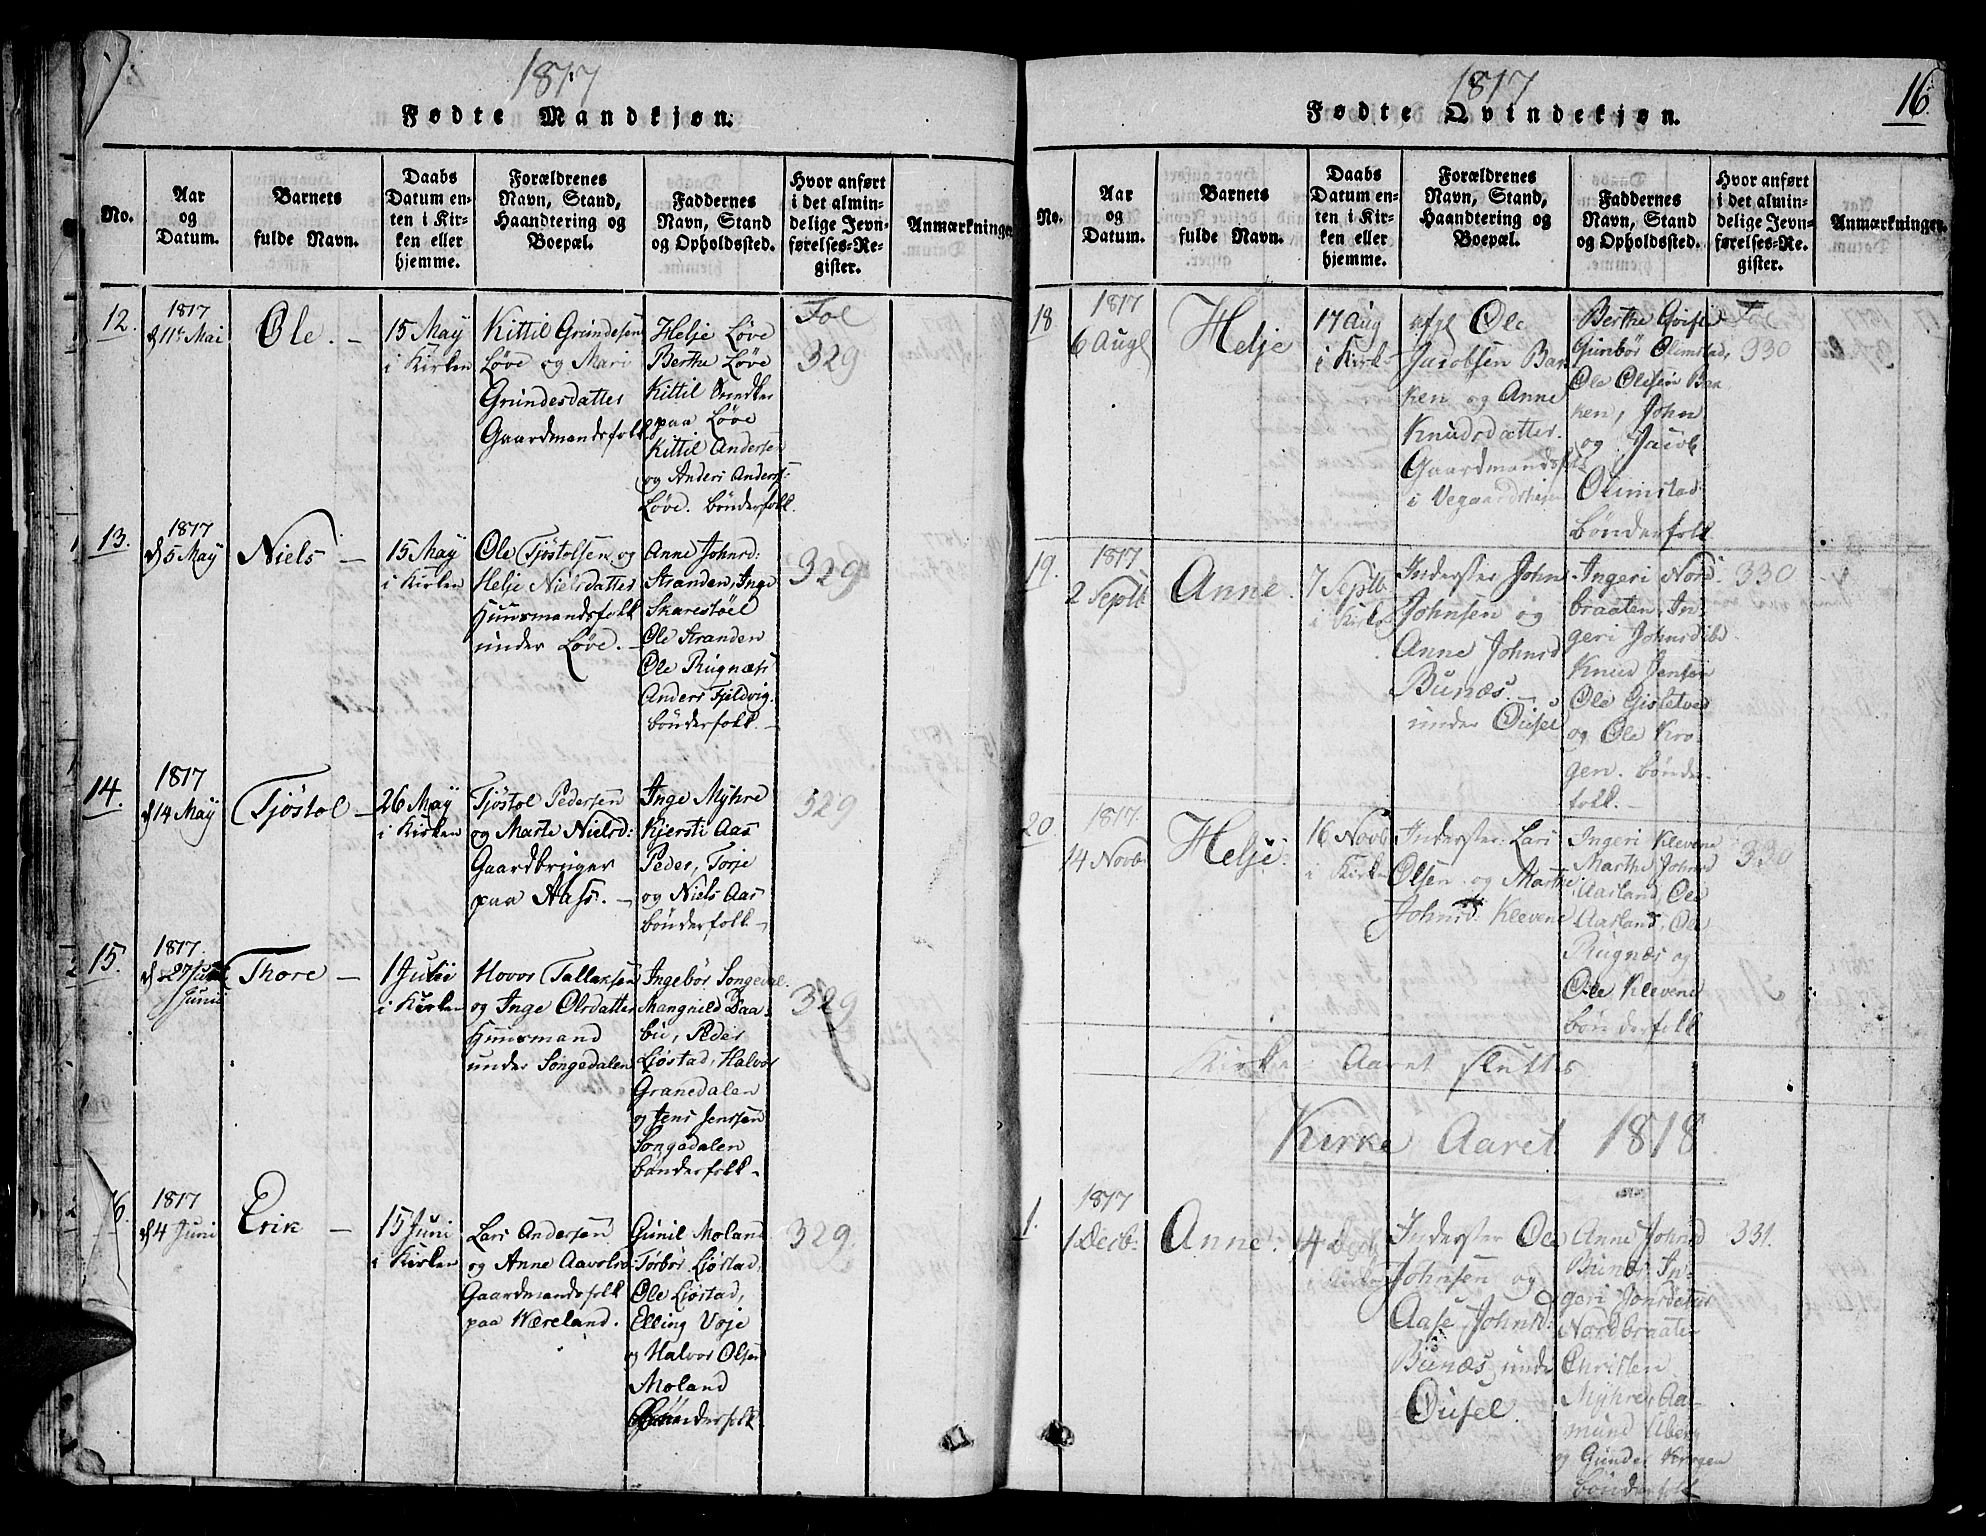 1817
Fødte Mandkjøn.
No.
Aar
og
Datum.
Barnets
fulde Navn.
Daabs
Datum en-
ten i Kir-
ken eller
hjemme.
Forældrenes
Navn, Stand,
Haandtering og
Boepæl.
Faddernes
Navn, Stand
og Opholdssted.
Hvor anført
i det almin-
delige Jevn-
førelses-Re-
gister.
Anmærkninger
12.
1817
d 11te Mai
Ole. —
15 May
i Kirken
Kittil Grundesen
Løve og Mari
Grundesdatter
Gaardmandsfolk
Helje Løve
Berthe Løve
Kittil
paa Løve
Kittil Andersen
og Anders Anders:
Løve. bønderfolk.
Fol
329
13.
1817
d 5 May
Niels —
15 May
i Kirken
Ole Tjøstolsen og
Helje Nielsdatter
Huusmandsfolk
under Løve. —
Anne Johnsd:
Stranden, Inge
Skarestøel
Ole Stranden
Ole Rugnæs
Anders Fjeldvig.
bønderfolk. —
329
14.
1817
d 14 May
Tjøstol —
26 May
i Kirken
Tjøstol Pedersen
og Marte Nielsd:
Gaardbruger
paa Aass. —
Inge Myhre
Kjersti Aas
Peder, Torje
og Niels Aas
bønderfolk —
329
15.
1817.
d 27
Junii
Thore —
1 Julii
i Kirken
Hovor Tallaksen
og Inge Olsdatter
Huusmand
under Songedalen
Ingebør Songedal.
Mangnild Daa-
bu, Peder
Ljøstad, Halvor
Granedalen
og Jens Jenssen
Songedalen
bønderfolk —
329
16.
1817
d 4 Juni
Erik —
15 Juni
i Kirken
Lars Andersen
og Anne Aavolsd.
Gaardmandsfolk
paa Wæreland.
Gunil Moland
Torbør Ljøstad,
Ole Ljøstad,
Elling Voje
og Halvor Olsen
Moland
Bønderfolk
329.
1817
16.
Fødte Qvindekjøn.
No.
Aar
og
Datum.
Barnets
fulde Navn.
Daabs
Datum en-
ten i Kir-
ken eller
hjemme.
Forældrenes
Navn, Stand,
Haandtering og
Boepæl.
Faddernes
Navn, Stand
og Opholdssted.
Hvor anført
i det almin-
delige Jevn-
førelses-Re-
gister.
Anmærkninger.
18
1817
6 Augl
Helje
17 Aug
i Kirk
Ole
Jacobsen Bak
ken og Anne
Knudsdatter.
Gaardmandsfolk
i Vegaardsheien
Berthe Gvisle
Gunbør Olimstad,
Ole Olesøn Bak
ken, John
og Jacob
Olimstad.
bønderfolk
330
19.
1817
2 Septb
Anne.
7 Septb
i Kirk
Inderster John
Johnsen og
Anne Johnsd
Bunæs
under Ousel
Ingeri Nord-
braaten, In-
geri Johnsd
Knud Jensen
Ole Gjsletved
og Ole Kro-
gen. bønder-
folk. —
330
20.
1817.
14 Novb
Helje
16 Novb
i Kirken
Inderster Lars
Olsen og Marthe
Johnsd Klevene
Ingeri Klevene
Marthe Johnsd
Aarland, Ole
Aarland, Ole
Rugnæs og
Ole Klevene
bønderfolk
330
Kirke-Aaret sluttes
Kirke Aaret 1818.
1.
1817
1 Decb:
Anne.
4 Decb
i Kirken
Inderster Ole
Johnsen og
Aase Johnsd:
Bunæs under
Ousel.
Anne Johnsd
Bunæs, In-
geri Jonsdatter
Nordbraaten
Christen
Myhre, Aa-
mund Uberg
og Gunder Krogen
bønderfolk
331.